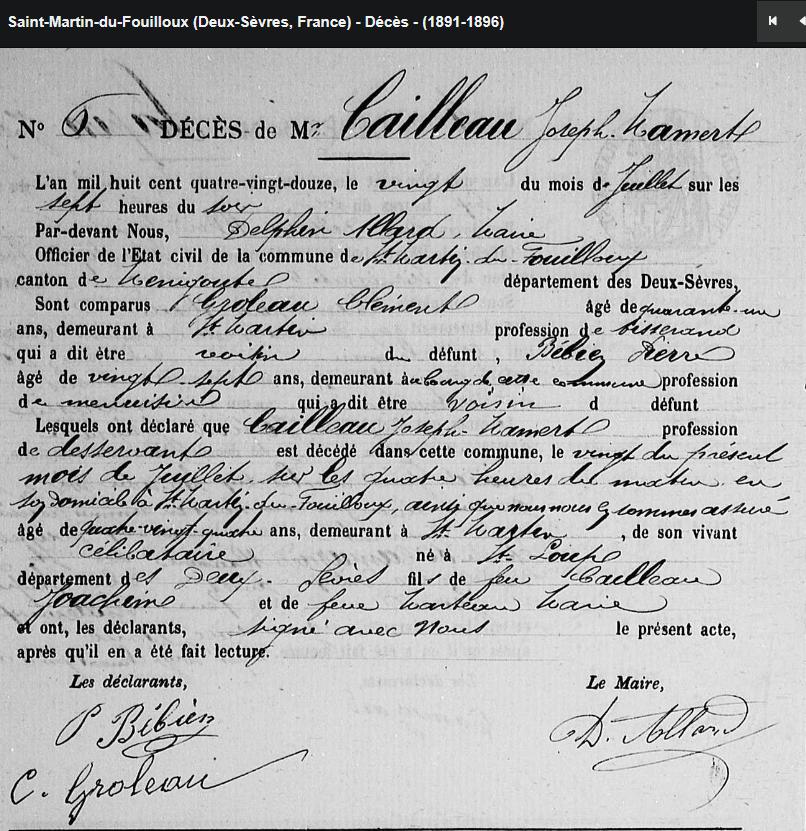 Saint-Martin-du-Fouilloux (Deux-Sèvres, France) - Décès - (1891-1896)
N° DÉCÈS de Mr Cailleau Joseph-Mamert
L'an mil huit cent quatre-vingt-douze, le vingt du mois de Juillet sur les
sept heures du soir
Par-devant Nous, Delphin Allard, Maire
Officier de l'Etat civil de la commune de St Martin-du-Fouilloux
canton de Ménigoute département des Deux-Sèvres,
Sont comparus Groleau Clément âgé de quarante-un
ans, demeurant à St Martin profession de tisserand
qui a dit être voisin du défunt, Bébien Pierre
âgé de vingt-sept ans, demeurant au bourg de cette commune profession
de menuisier qui a dit être voisin d défunt
Lesquels ont déclaré que Cailleau Joseph-Mamert profession
de desservant est décédé dans cette commune, le vingt du présent
mois de Juillet, sur les quatre heures du matin en
son domicile à St Martin-du-Fouilloux, ainsi que nous nous en sommes assuré
âgé de quatre-vingt-quatre ans, demeurant à St Martin, de son vivant
célibataire né à St Loup
département des Deux-Sèvres fils de feu Cailleau
Joachim et de feue Marteau Marie
et ont, les déclarants, signé avec Nous le présent acte,
après qu'il en a été fait lecture.
Les déclarants, Le Maire,
P Bébien D. Allard
C. Groleau